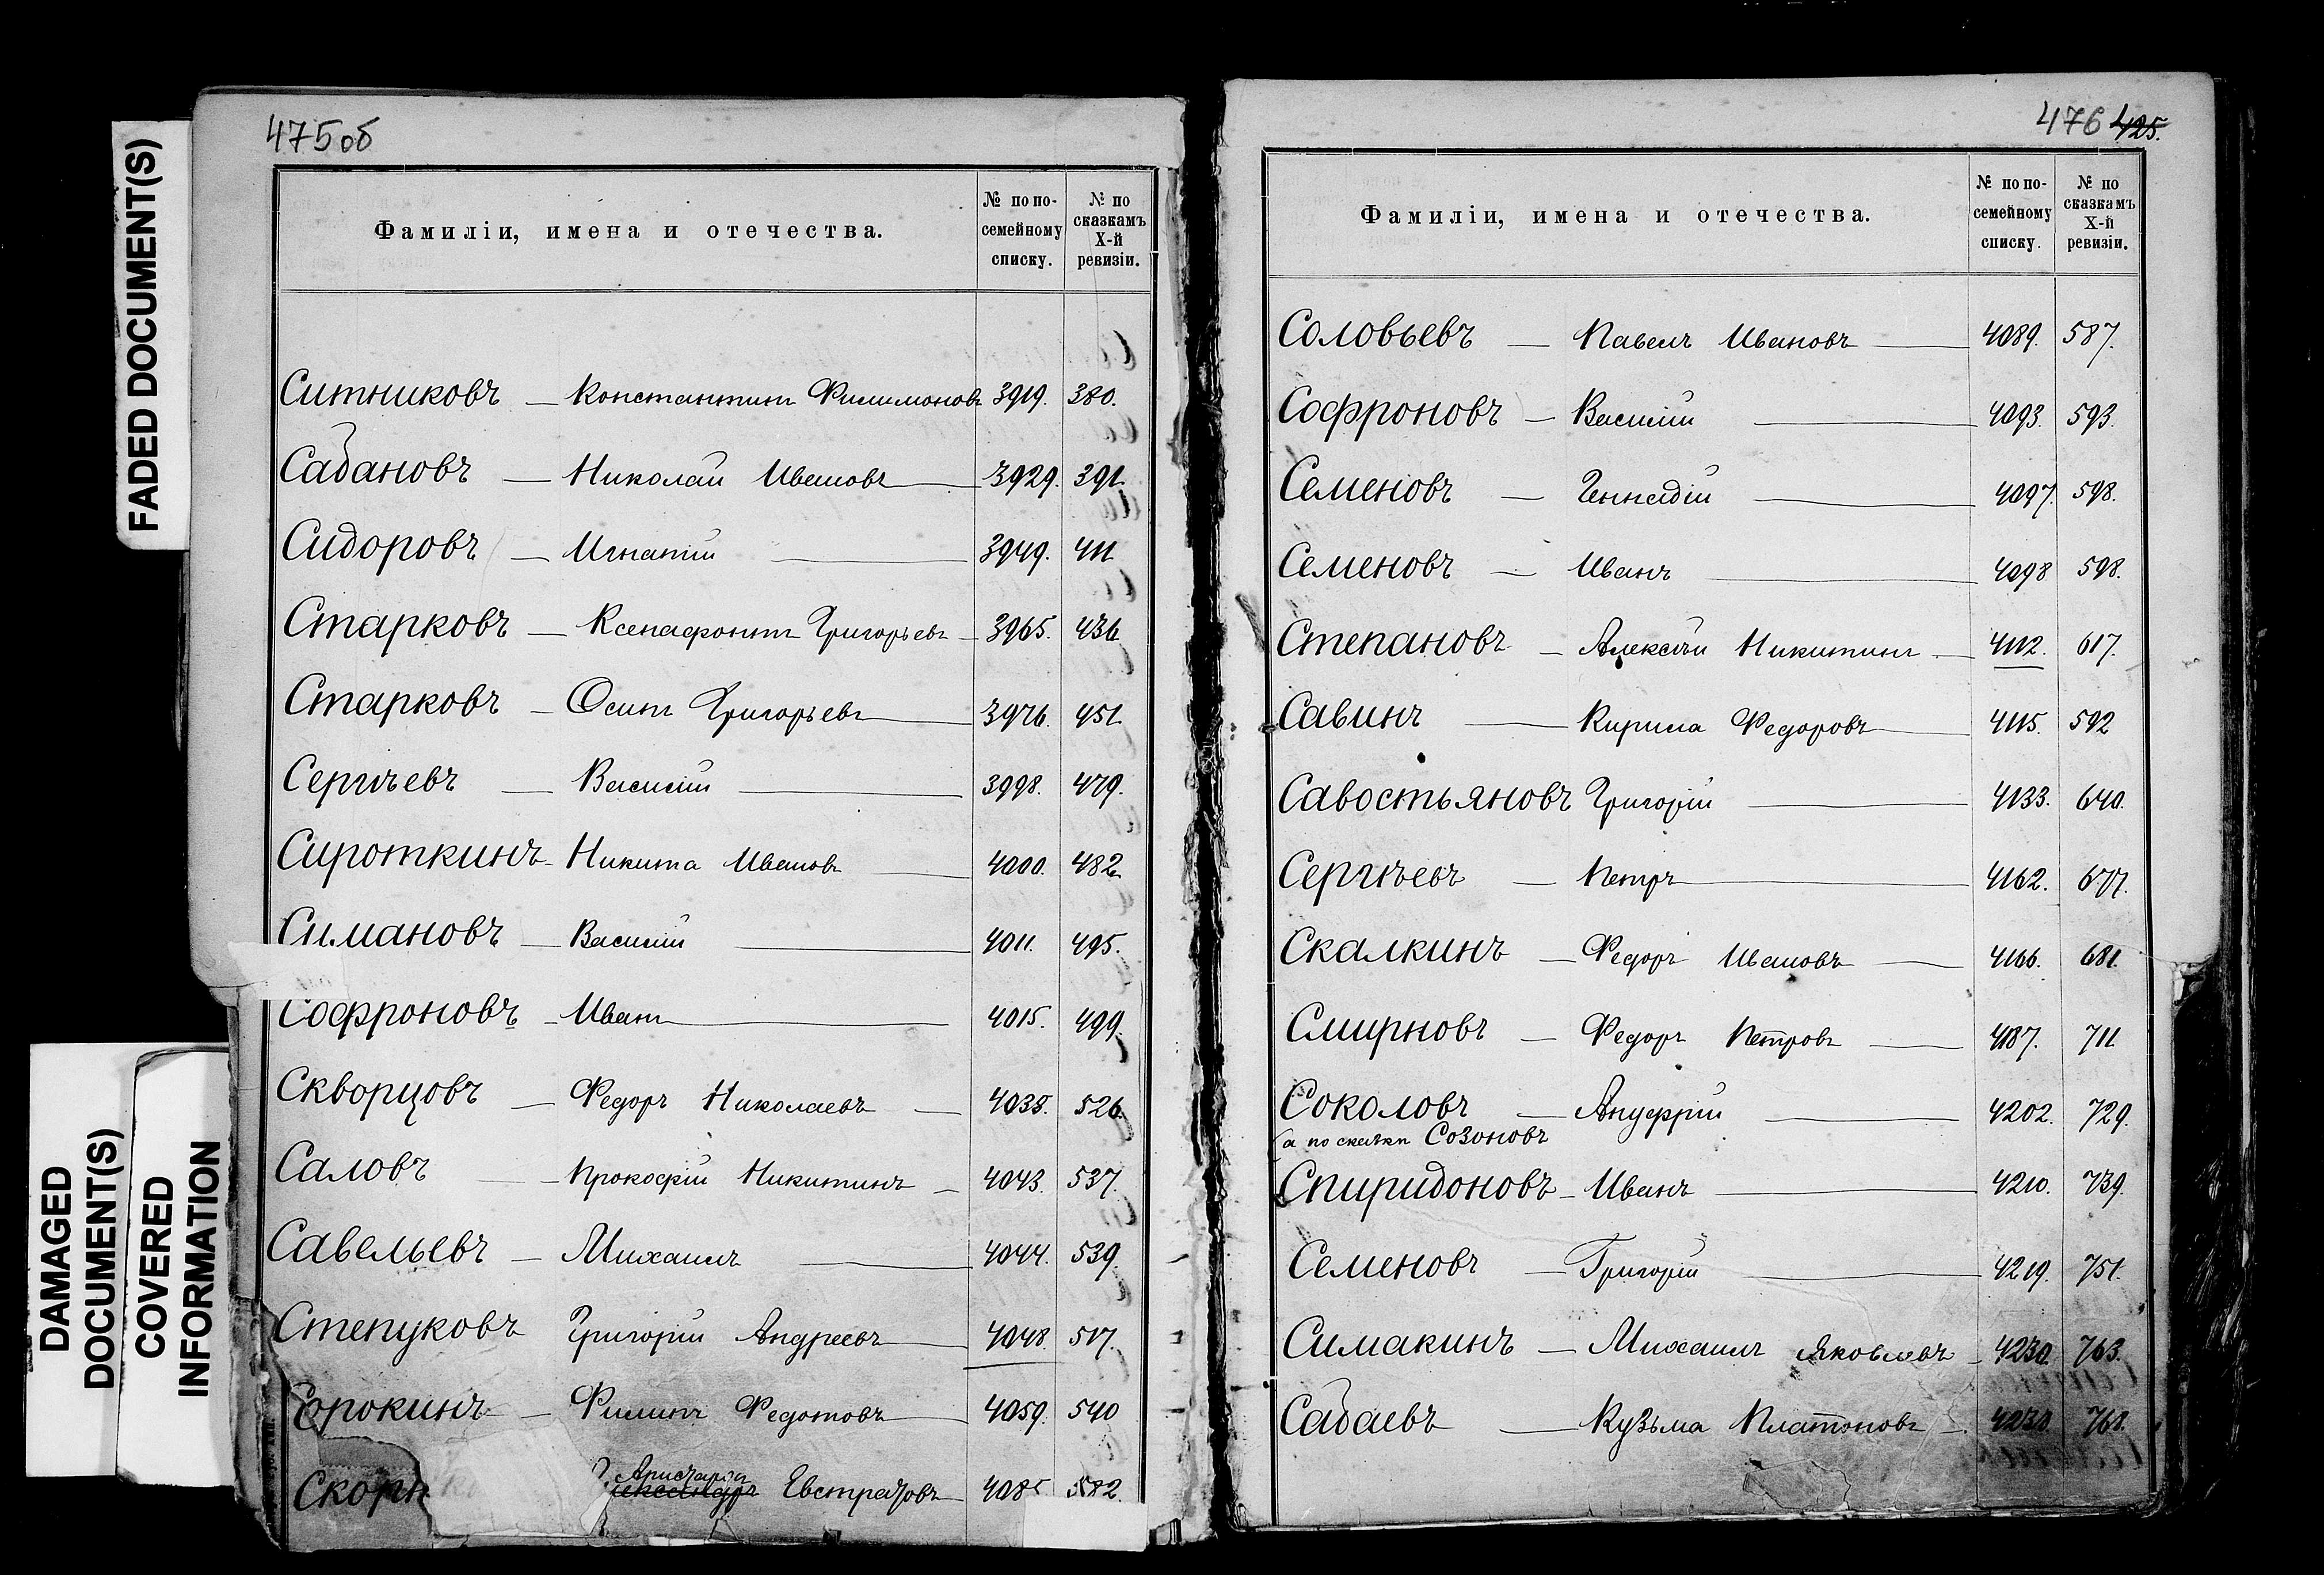 FADED DOCUMENT(S)
DAMAGED
DOCUMENT(S)
COVERED
INFORMATION
475об
Фамиліи, имена и отечества.
№ по по-
семейному
списку.
№ по
сказкамъ
X-й
ревизіи.
Ситниковъ — Константинъ Филимоновъ 3919. 380.
Сабановъ — Николай Ивановъ 3929. 391.
Сидоровъ — Игнатій 3949. 411
Старковъ — Ксенафонтъ Григорьевъ 3965. 436
Старковъ — Осипъ Григорьевъ 3976. 451.
Сергѣевъ — Василій 3998. 479.
Сироткинъ — Никита Ивановъ 4000. 482
Симановъ — Василій 4011. 495.
Софроновъ — Иванъ 4015. 499.
Скворцовъ — Федоръ Николаевъ — 4035. 526.
Саловъ — Прокофій Никитинъ — 4043. 537.
Савельевъ — Михаилъ 4044. 539.
Степуковъ Григорій Андреевъ 4048. 517.
Сорокинъ — Филипъ Федотовъ 4059. 540
Скорн Евстратовъ 408 582.
476 425.
Фамиліи, имена и отечества.
№ по по-
семейному
списку.
№ по
сказкамъ
X-й
ревизіи.
Соловьевъ — Павелъ Ивановъ 4089. 587.
Софроновъ — Василій 4093. 593.
Семеновъ — Геннадій 4097. 598.
Семеновъ — Иванъ 4098 598.
Степановъ — Алексѣй Никитинъ — 4112. 617.
Савинъ — Кирила Федоровъ 4115. 592
Савостьяновъ Григорій 4133. 640.
Сергѣевъ — Петръ 4162. 677.
Скалкинъ — Федоръ Ивановъ — 4166. 681.
Смирновъ — Федоръ Петровъ — 4187. 711.
Соколовъ — Ануфрій 4202. 729.
(а по сказкѣ Созоновъ
Спиридоновъ — Иванъ 4210. 739.
Семеновъ — Григорій 4219. 751.
Симакинъ — Михаилъ Яковлевъ — 4230. 763.
Садаевъ — Кузьма Платоновъ —